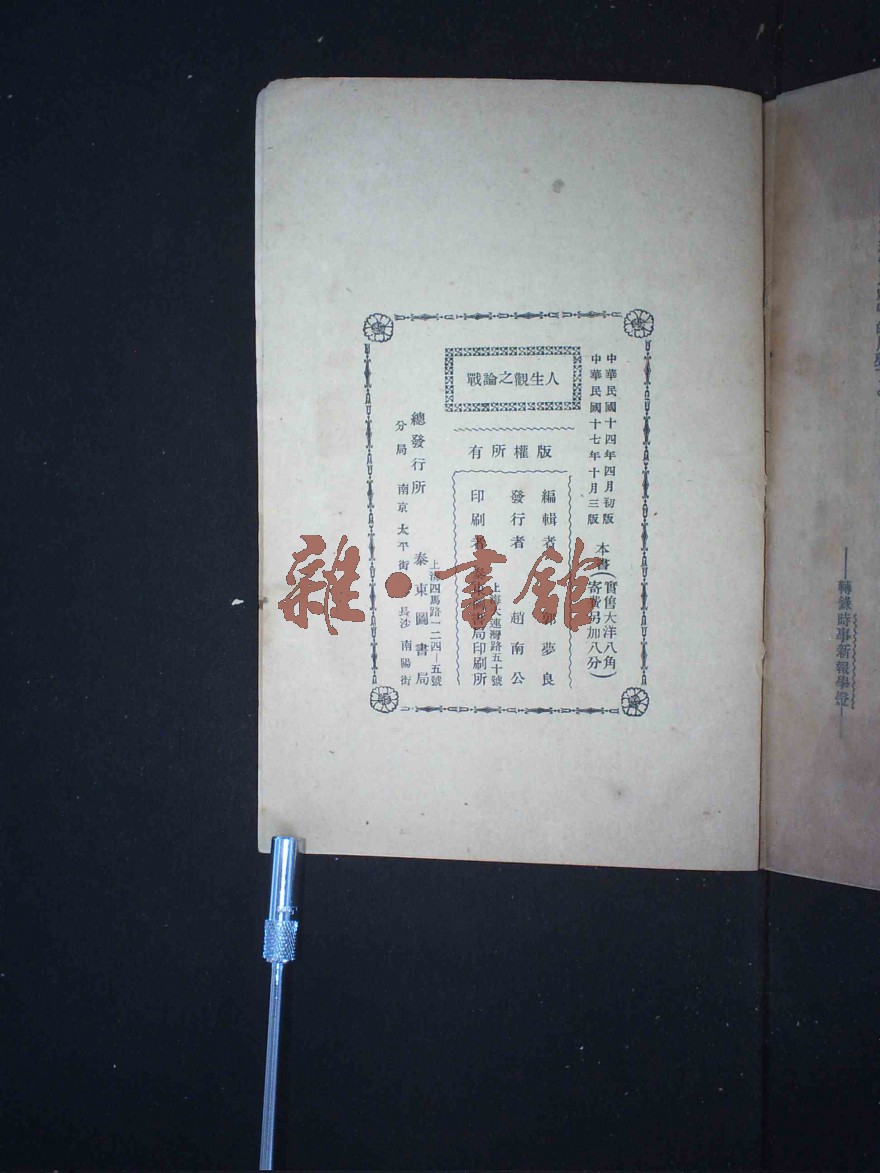 中華民國十四年四月初版
中華民國十七年十月三版
本書(實售大洋八角
寄費另加八分)
人生觀之論戰
版權所有
編輯者 郭夢良
發行者 趙南公
上海大連灣路五十號
印刷者 泰東圖書局印刷所
總發行所 泰東圖書局
上海四馬路一二四—五號
分局 南京太平街 長沙南陽街
雜·書館
——轉錄時事新報學燈——